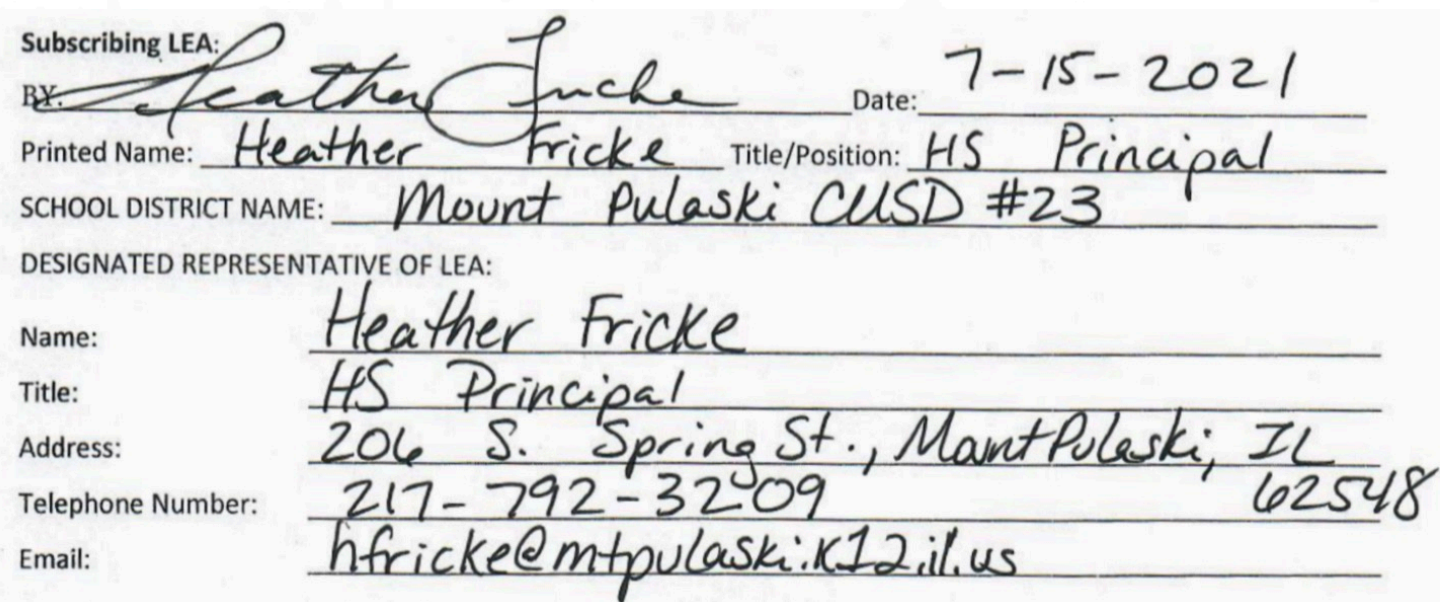 Subscribing LEA:
BY: Heather Fricke Date: 7-15-2021
Printed Name: Heather Fricke Title/Position: HS Principal
SCHOOL DISTRICT NAME: Mount Pulaski CUSD #23
DESIGNATED REPRESENTATIVE OF LEA:
Name: Heather Fricke
Title: HS Principal
Address: 206 S. Spring St., Mount Pulaski, IL
Telephone Number: 217-792-3209 62548
Email: hfricke@mtpulaski.k12.il.us